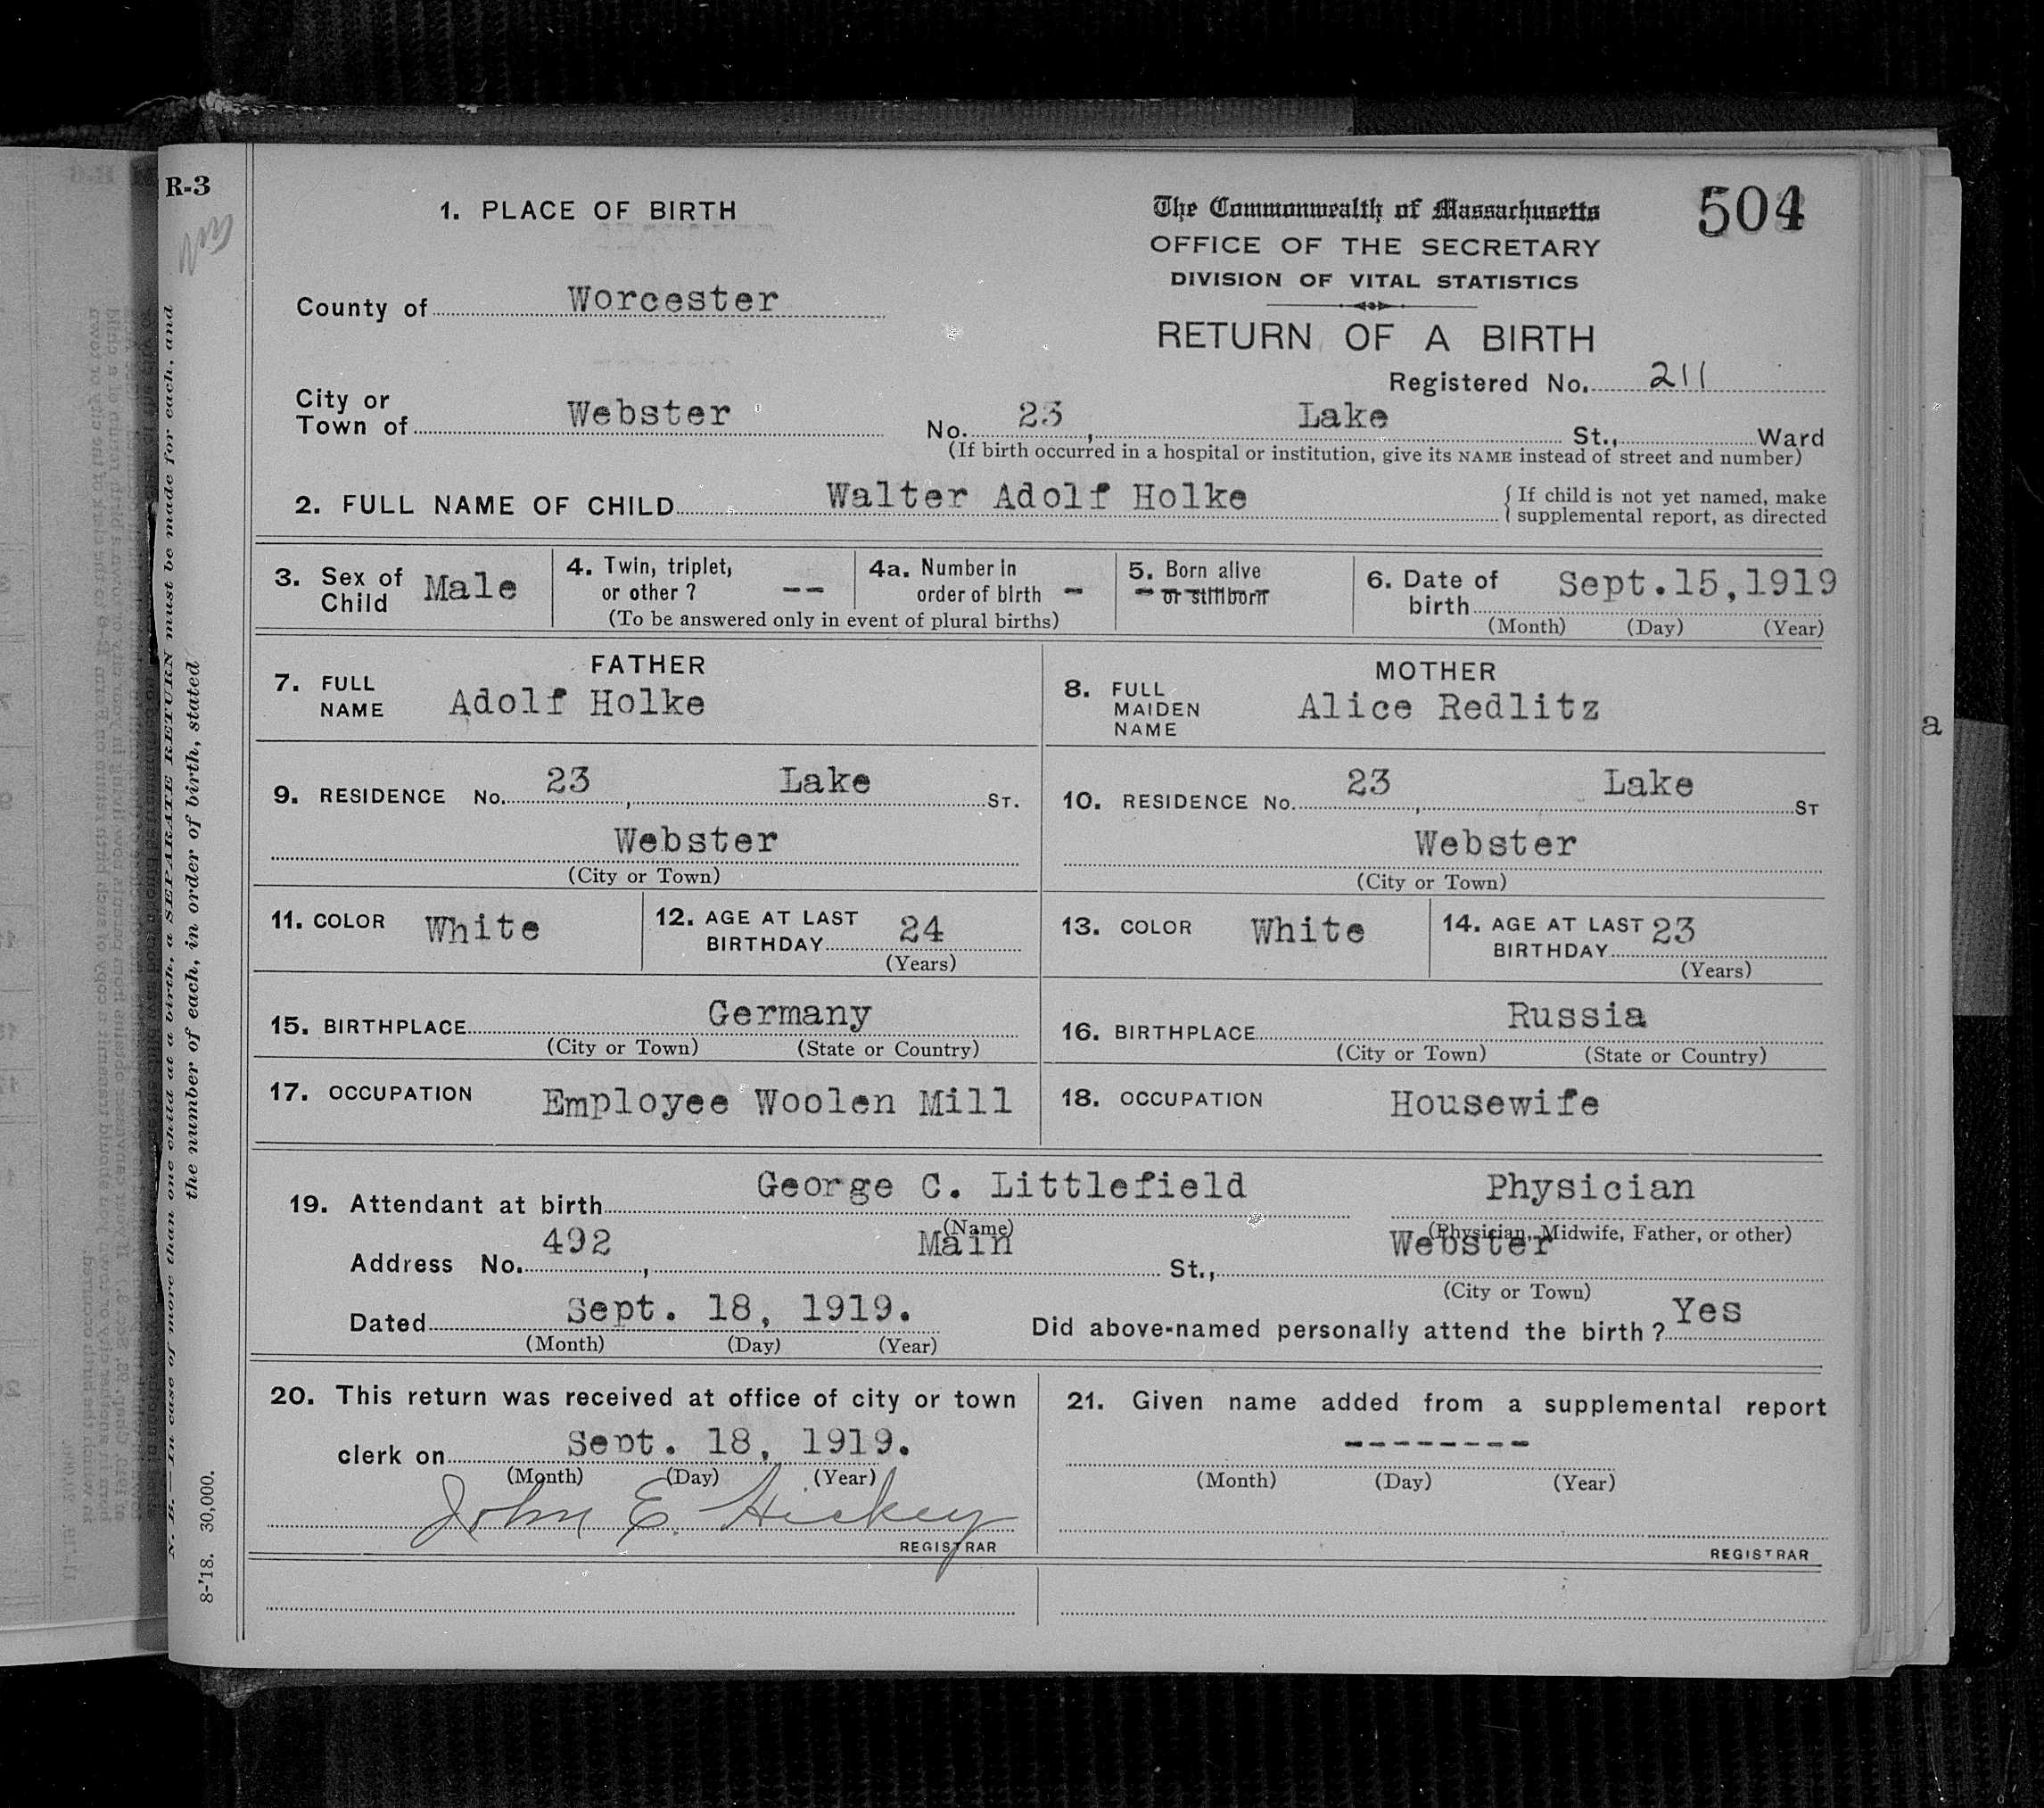 R-3
1. PLACE OF BIRTH
The Commonwealth of Massachusetts
504
OFFICE OF THE SECRETARY
DIVISION OF VITAL STATISTICS
County of Worcester
RETURN OF A BIRTH
Registered No. 211
City or
Town of Webster
No. 23, Lake St., Ward
(If birth occurred in a hospital or institution, give its NAME instead of street and number)
2. FULL NAME OF CHILD Walter Adolf Holke
{ If child is not yet named, make
supplemental report, as directed
3. Sex of
Child Male
4. Twin, triplet,
or other ? --
4a. Number in
order of birth -
(To be answered only in event of plural births)
5. Born alive
or stillborn
6. Date of
birth Sept.15,1919
(Month) (Day) (Year)
FATHER
7. FULL
NAME Adolf Holke
MOTHER
8. FULL
MAIDEN
NAME Alice Redlitz
9. RESIDENCE No. 23, Lake ST.
Webster
(City or Town)
10. RESIDENCE No. 23, Lake ST
Webster
(City or Town)
11. COLOR White
12. AGE AT LAST
BIRTHDAY 24
(Years)
13. COLOR White
14. AGE AT LAST
BIRTHDAY 23
(Years)
15. BIRTHPLACE Germany
(City or Town) (State or Country)
16. BIRTHPLACE Russia
(City or Town) (State or Country)
17. OCCUPATION Employee Woolen Mill
18. OCCUPATION Housewife
19. Attendant at birth George C. Littlefield Physician
(Name) (Physician, Midwife, Father, or other)
Address No. 492, Main St., Webster
(City or Town)
Dated Sept. 18, 1919.
(Month) (Day) (Year)
Did above-named personally attend the birth ? Yes
20. This return was received at office of city or town
clerk on Sept. 18, 1919.
(Month) (Day) (Year)
John E. Hickey
REGISTRAR
21. Given name added from a supplemental report
--------
(Month) (Day) (Year)
REGISTRAR
N. B.—In case of more than one child at a birth, a SEPARATE RETURN must be made for each, and
the number of each, in order of birth, stated
8-'18. 30,000.
a